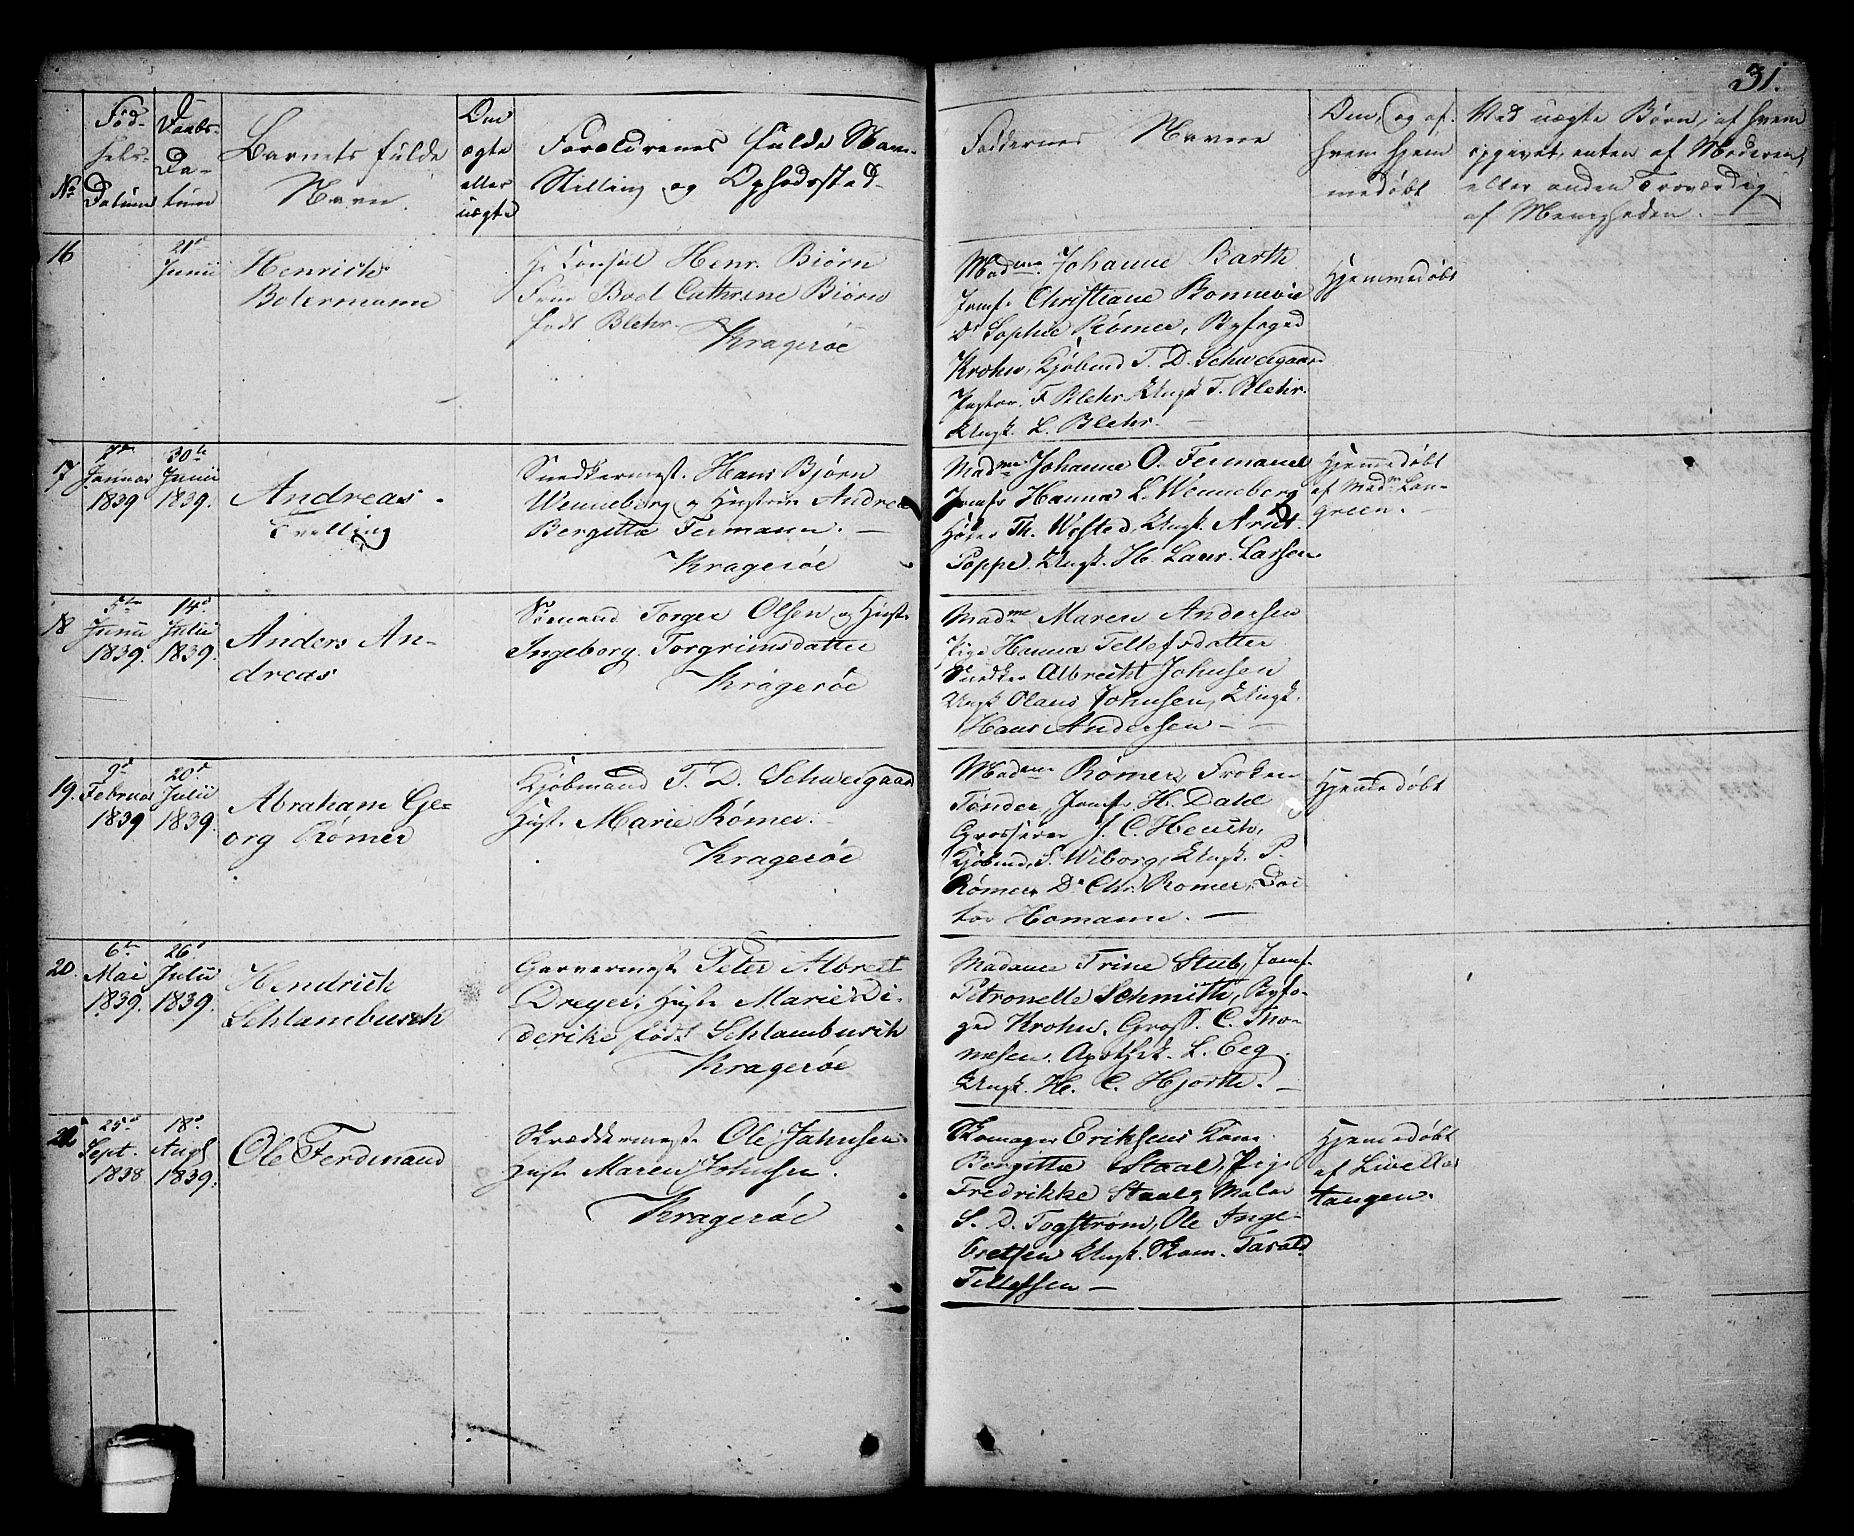 31.
No
Fød-
sels-
Datum
Daabs-
Da-
tum
Barnets fulde
Navn.
Om
ægte
eller
uægte
Forældrenes fulde Navn
Stilling og Opholdssted
Faddernes Navne
Den, og af
hvem hjem
medøbt
Ved uægte Børn, af hvem
opgivet, enten af Moderen,
eller anden Troværdig
af Menigheden.
16
21d
Junii
Henrich
Botermann
Hr Consul Henr. Biørn
Frue Boel Cathrine Biørn
født Blehr.
Kragerøe
Madme Johanne Barth
Jomfr Christiane Bonnevie
Do Sophie Rømer, Byfoged
Krohn, Kjøbmd T. D. Schweigaard
Pastor F Blehr, Ungk T. Blehr.
Ungk. L. Blehr.
Hjemmedøbt
17
Januar
1839
30te
Junii
1839.
Andreas
Tvelling
Snedkermest. Hans Bjørn
Wenneberg og Hustru Andrea
Bergitta Fermann.
Kragerøe
Madme Johanne O. Fermann
Jomfr Hanna L. Wenneberg
Th. Wisted, Ungk. Arnt
Poppe. Ungk. H. Laur. Larsen
Hjemmedøbt
af Madm Lan-
green.
18
5te
Junii
1839.
14d
Julii
1839.
Anders An-
dreas
Sømand Torger Olsen og Hust.
Ingeborg Torgrimsdatter
Kragerøe
Madme Maren Andersen
Pige Hanna Tellefsdatter
Snedker Albrecht Johnsen
Ungk Olaus Johnsen, Ungk.
Hans Andersen
19.
9d
Februar
1839
20d
Julii
1839.
Abraham Ge-
org Rømer
Kjøbmand T. D. Schweigaard
Hust. Marie Rømer.
Kragerøe
Madme Rømer, Frøken
Tønder, Jomfr H. Dahl
Grosserer J. C. Heuch,
Kjøbmd. S. Wiborg, Ungk. P.
Rømer, Do Chr. Rømer, Doc
tor Homann.
Hjemmedøbt
20.
6te
Mai
1839.
26d
Julii
1839.
Hendrich
Schlambusch
Garvermest. Peter Albrect
Dreyer, Hust. Marie Di-
derike født Schlambusch
Kragerøe
Madame Trine Stub, Jomf.
Petronelle Schmith, Byfo-
ged Krohn, Gross. C. Tho-
mesen. Apothek. L. Eeg.
Ungk. H. C. Hjorth.
25d
Sept.
1838
18d
Augs
1839.
Ole Ferdinand
Skræddermest. Ole Jahnsen
Hust. Maren Johnsen.
Kragerøe
Skomager Eriksens Kone
Bergitta Staal, Pige
Fredrikke Staal, Maler
S. D. Togstrøm, Ole Inge-
bretsen Ungk. Skom. Tarald
Tellefsen
Hjemedøbt
af
tangen.